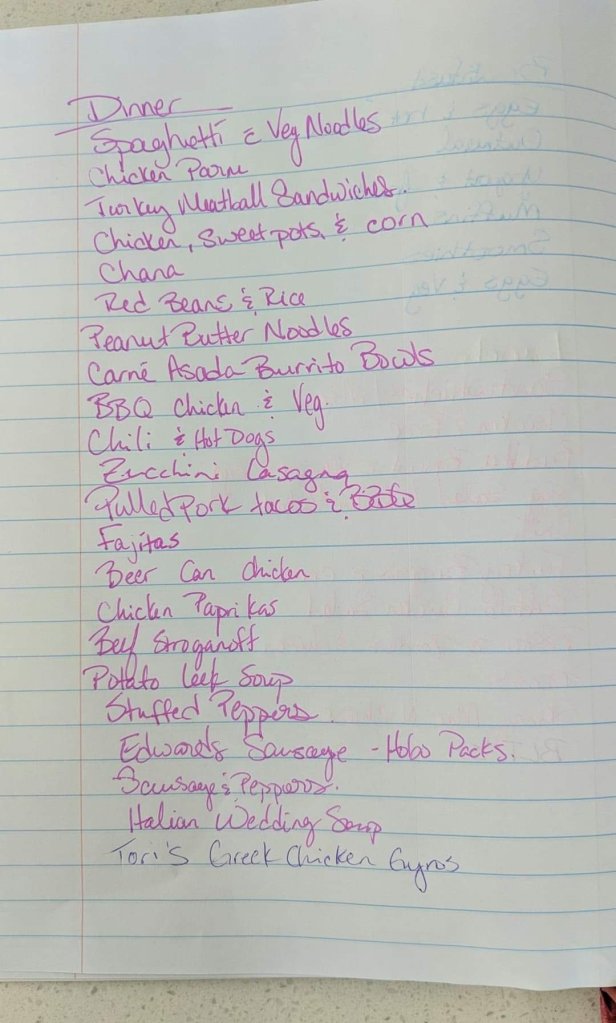 Dinner
Spaghetti & Veg Noodles
Chicken Parm
Turkey Meatball Sandwiches
Chicken, Sweet pots, & corn
Chana
Red Beans & Rice
Peanut Butter Noodles
Carné Asada Burrito Bowls
BBQ chicken & Veg.
Chili & Hot Dogs
Zucchini Lasagna
Pulled Pork tacos &
Fajitas
Beer Can chicken
Chicken Paprikas
Beef Stroganoff
Potato leek Soup
Stuffed Peppers.
Edwards Sausage - Hobo Packs.
Sausage & Peppers.
Italian Wedding Soup
Tori's Greek Chicken Gyros